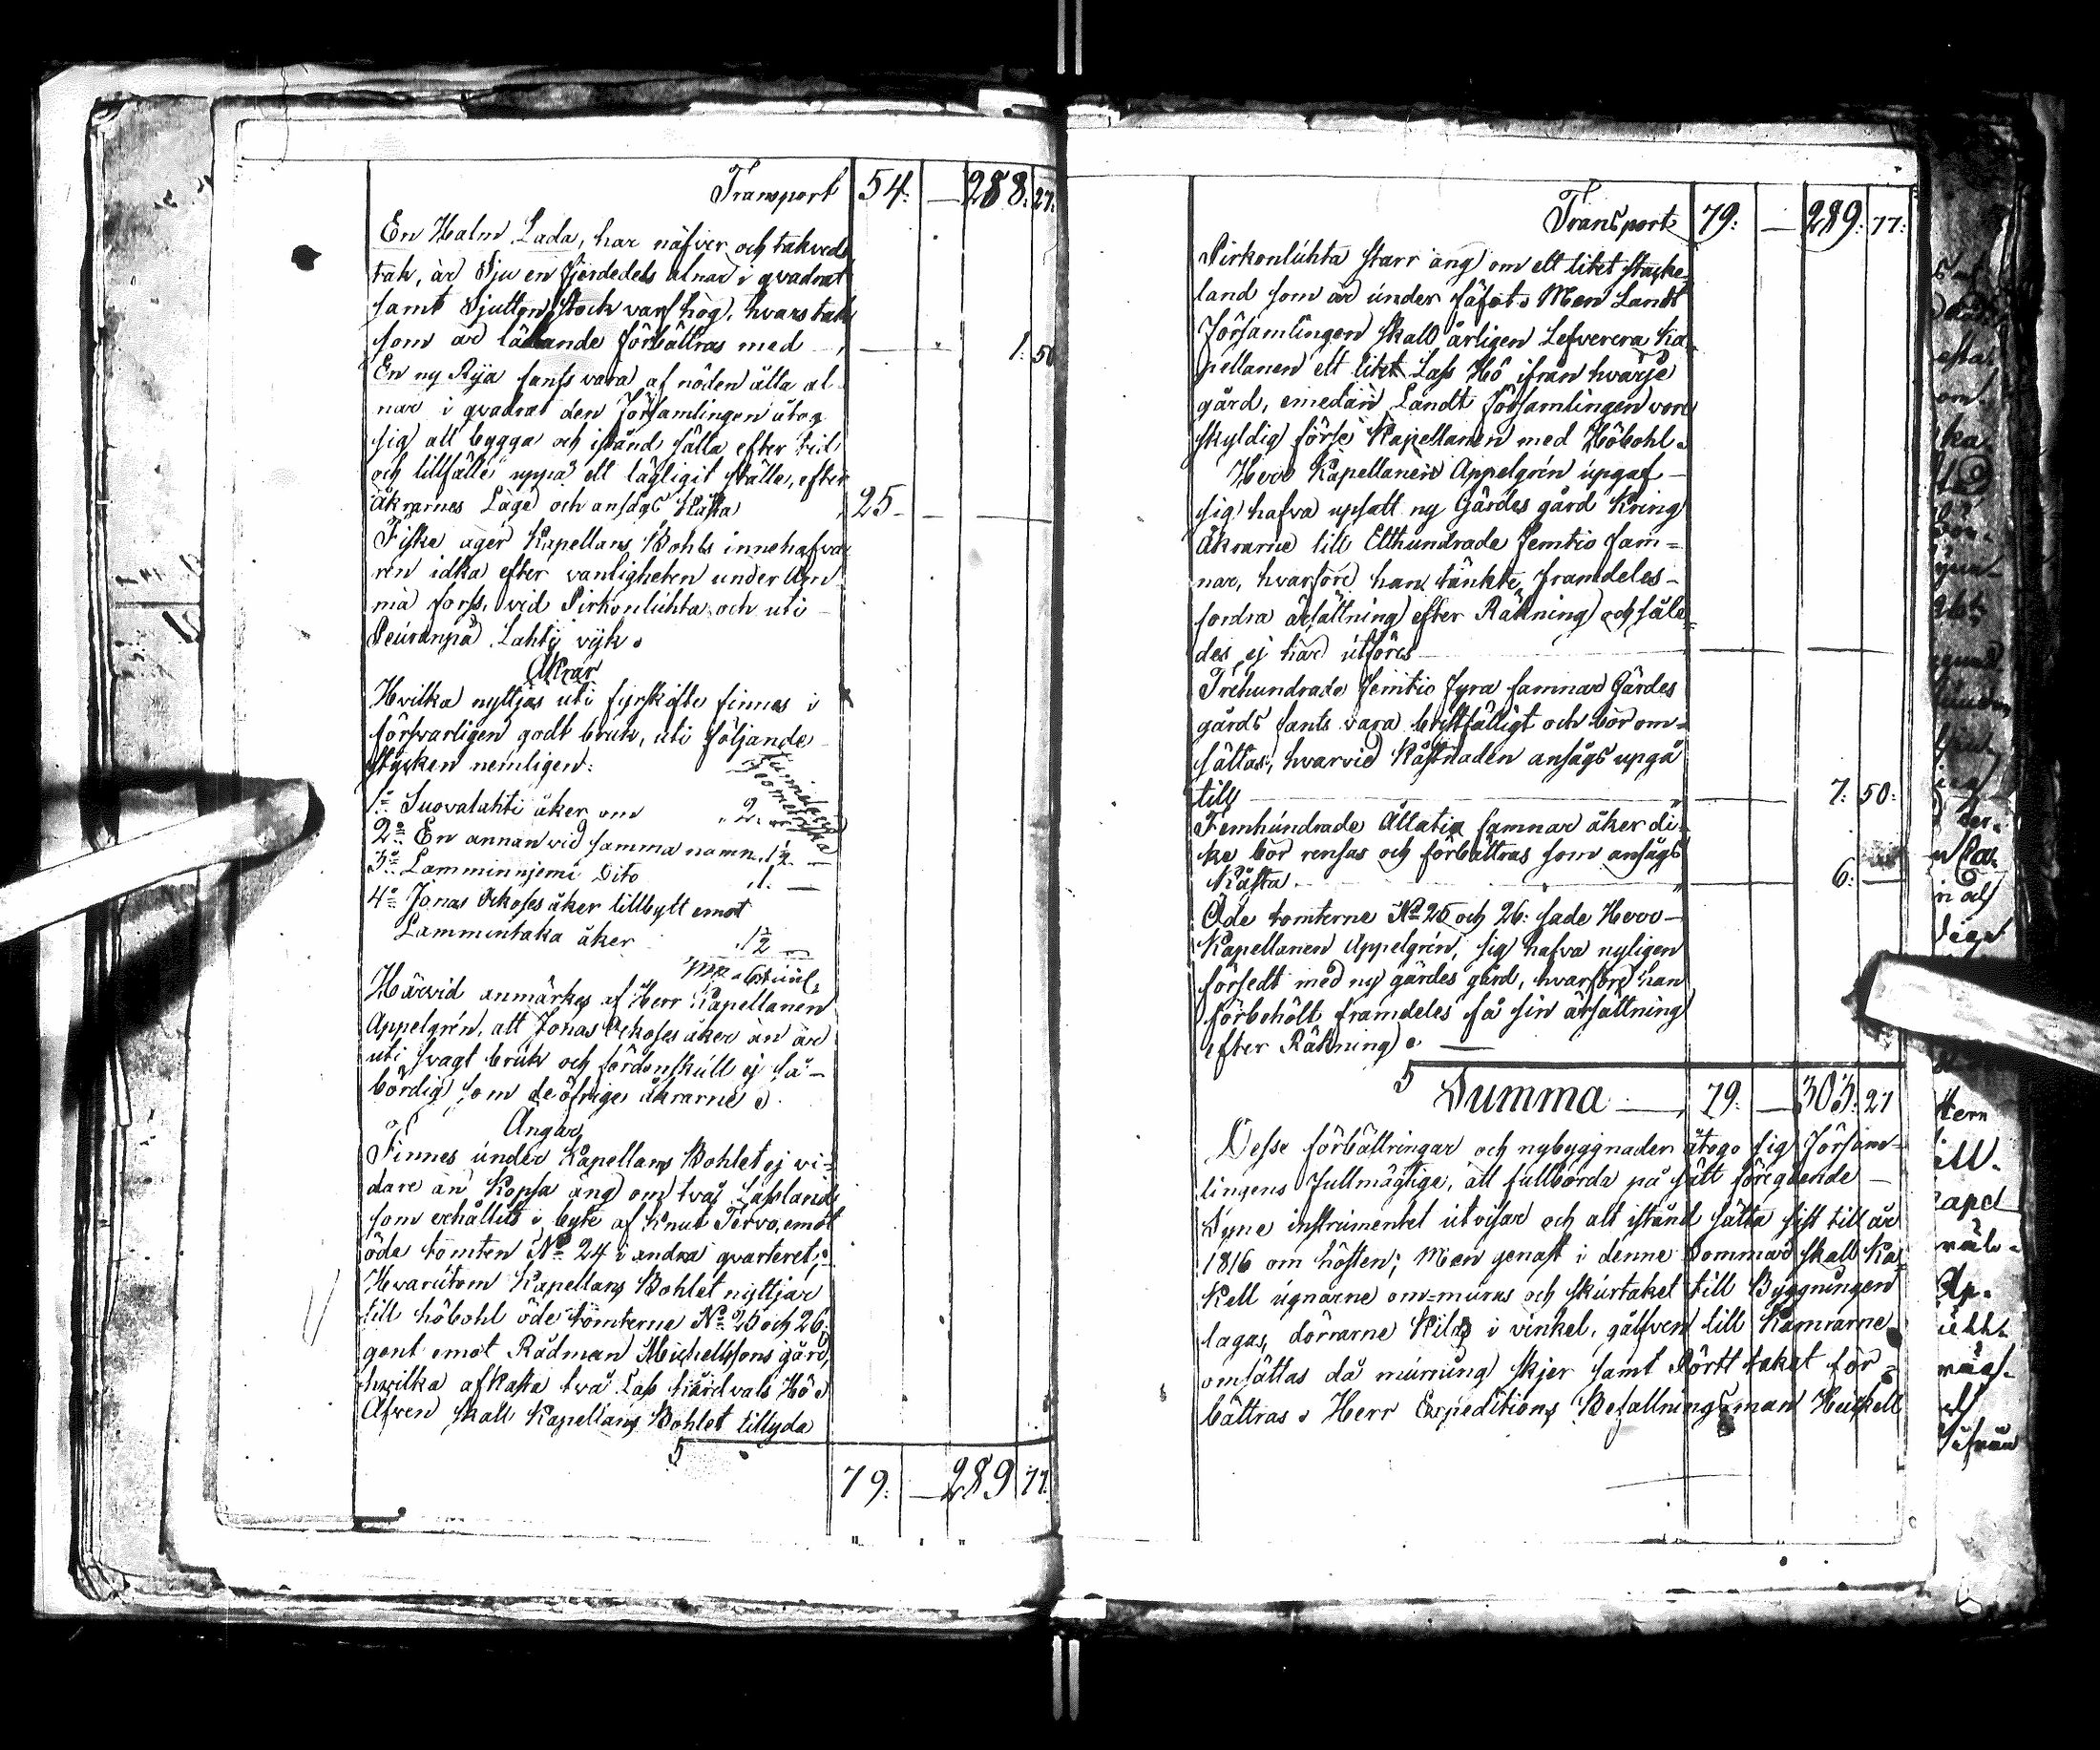 Transport 54: — 288: 27.
En Halm Lada, har näfver och takveds
tak, är Sju en fjerdedels alnar i qvadrat
samt Sjutton stock varf hög, hvars tak
som är läkande förbättras med — 1: 50
En ny Rija fants vara af nöden åtta al-
nar i qvadrat den Församlingen åtog
sig att bygga och istånd sätta efter tid
och tillfälle uppå ett lägligit ställe, efter
Åkrarnes Läge och ansågs Kåsta 25 — —
Fiske äger Kapellans Bohls innehafva-
ren idka efter vanligheten under Äm-
mä forss, vid Pirkonluhta och uti
Peuranpä Lahti vijk.
Åkrar
Hvilka nyttjas uti fyrskifte finnes i
försvarligen godt bruk, uti följande
stycken nemligen:
Tunneland
Geometriska
1o Suovalahti åker om 2. —
2o En annan vid samma namn 1½ —
3o Lamminnjemi Dito 1. —
4o Jonas Ockoses åker tillbytt emot
Lammintaka åker 1½ —
Härvid anmärkes af Herr Kapellanen
Appelgrén, att Jonas Ockoses åker än är
uti svagt bruk och fördenskull ej så
bördig som de öfrige åkrarne.
Ängar
Finnes under Kapellans Bohlet ej vi-
dare än Kopsa äng om två Lassland
som erhållits i byte af Knut Tervo, emot
öde tomten No 24 i andra qvarteret;
Hvarutom Kapellans Bohlet nyttjar
till höbohl öde tomterne No 25 och 26.
gent emot Rådman Michelssons gård,
hvilka afkasta två Lass hårdvals Hö.
Äfven skall Kapellans Bohlet tillyda
S 79: — 289 77.
Transport 79: — 289: 77:
Pirkonluhta starr äng om ett litet stacke-
land som är under säfot. Men Landt
Församlingen skall årligen Lefverera Ka-
pellanen ett litet Lass Hö ifrån hvarje
gård, emedan Landt Församlingen vore
skyldig förse Kapellanen med Höbohl.
Herr Kapellanen Appelgrén upgaf
sig hafva upsatt ny Gärdes gård Kring
Åkrarne till Etthundrade femtio fam-
nar, hvarföre han tänkte framdeles
fordra ärsättning efter Räkning och såle-
des ej här utföres — — — —
Trehundrade femtio fyra famnar Gärdes
gårds fants vara bristfälligt och bör om-
sättas, hvarvid Kåstnaden ansågs upgå
till — — 7: 50:
Femhundrade Åttatio famnar åker di-
ke bör rensas och förbättras som ansågs
Kåsta — — 6: —
Öde tomterne No 25 och 26. sade Herr
Kapellanen Appelgrén, sig hafva nyligen
försedt med ny gärdes gård, hvarföre han
förbehölt framdeles få sin ärsättning
efter Räkning. —
S Summa — 79: — 303: 27
Desse förbättringar och nybyggnader åtogo sig Försam-
lingens fullmägtige, att fullborda på sätt föregående
Syne instrumentet utvisar och att istånd sätta sist till år
1816 om hösten; Men genast i denne Sommar skall Ka-
kell ugnarne om-muras och skurtaket till Byggningen
lagas, dörrarne Kilas i vinkel, gålfven till Kamrarne
omsättas då murning skjer samt Rörtt taket för-
bättras. Herr Expeditions Befallningsman Heickell